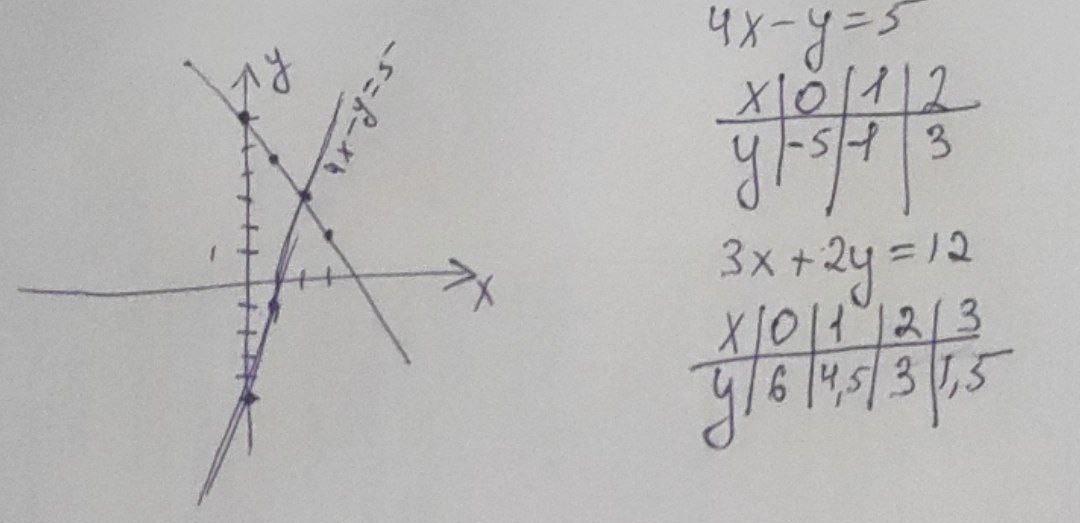 y
4x-y=5
x
4x-y=5
x|0|1|2
y|-5|-1|3
3x+2y=12
x|0|1|2|3
y|6|4,5|3|1,5